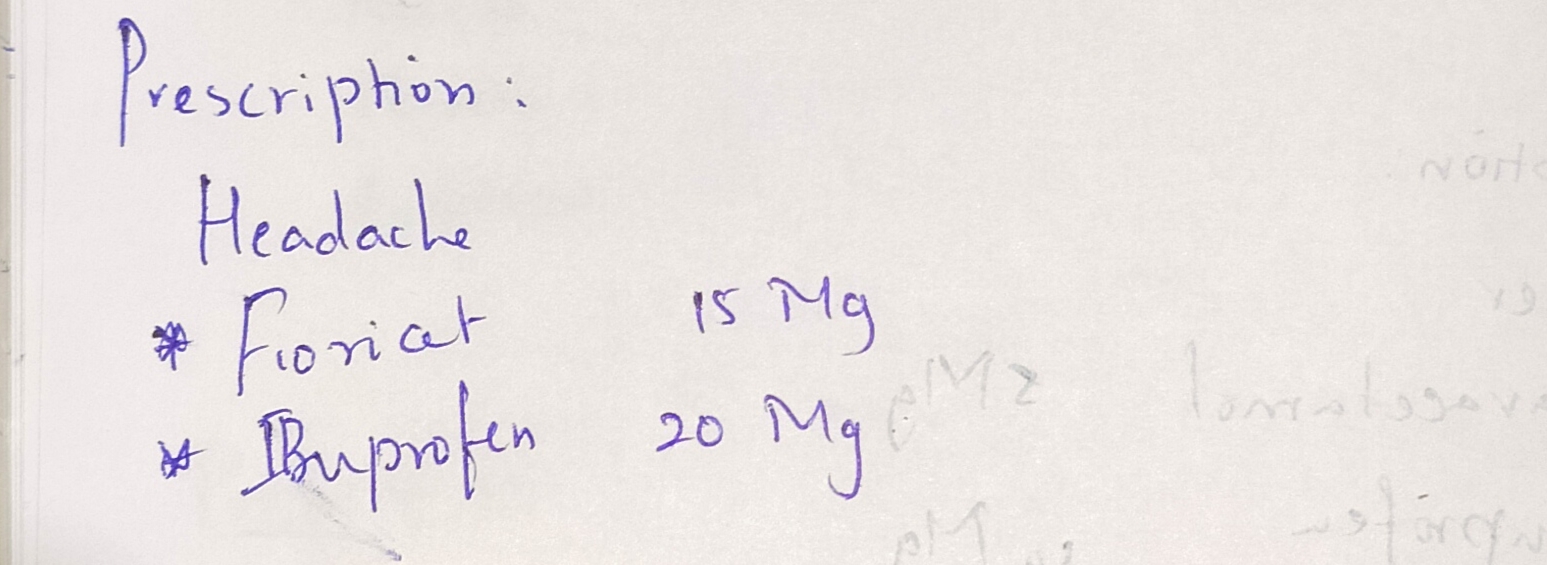 Prescription:
Headache
* Fioricet 15 Mg
* IBuprofen 20 Mg